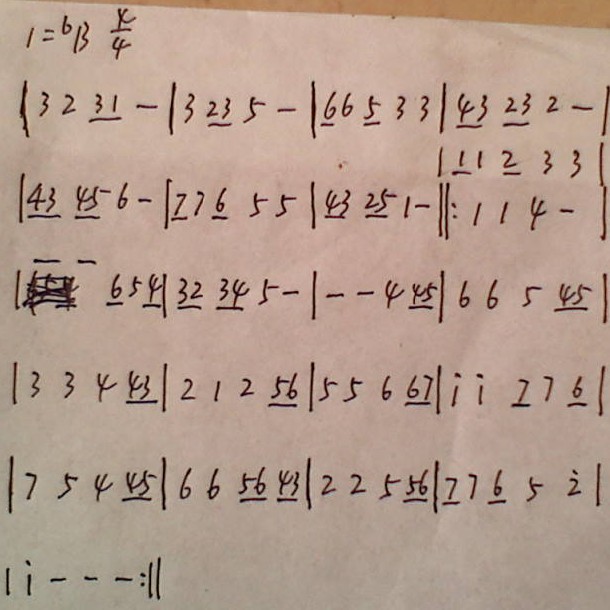 1=ᵇB 4/4
|3 2 31 - |3 23 5 - |66 5 3 3|43 23 2 - |
|11 2 3 3|
|43 45 6 - |77 6 5 5|43 25 1 - ‖: 1 1 4 - |
| - - 654|32 34 5 - | - - 4 45|6 6 5 45|
|3 3 4 43|2 1 2 56|5 5 6 67|i i 7 7 6|
|7 5 4 45|6 6 56 43|2 2 5 56|77 6 5 2̇|
|i - - - :‖